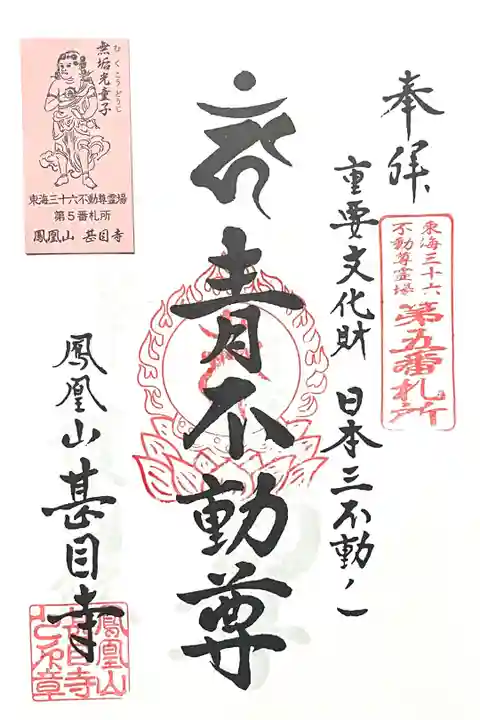 奉拝
東海三十六
不動尊霊場
第五番札所
重要文化財 日本三不動ノ一
青不動尊
鳳凰山甚目寺
無垢光童子
むくこうどうじ
東海三十六不動尊霊場
第5番札所
鳳凰山 甚目寺
鳳凰山
甚目寺